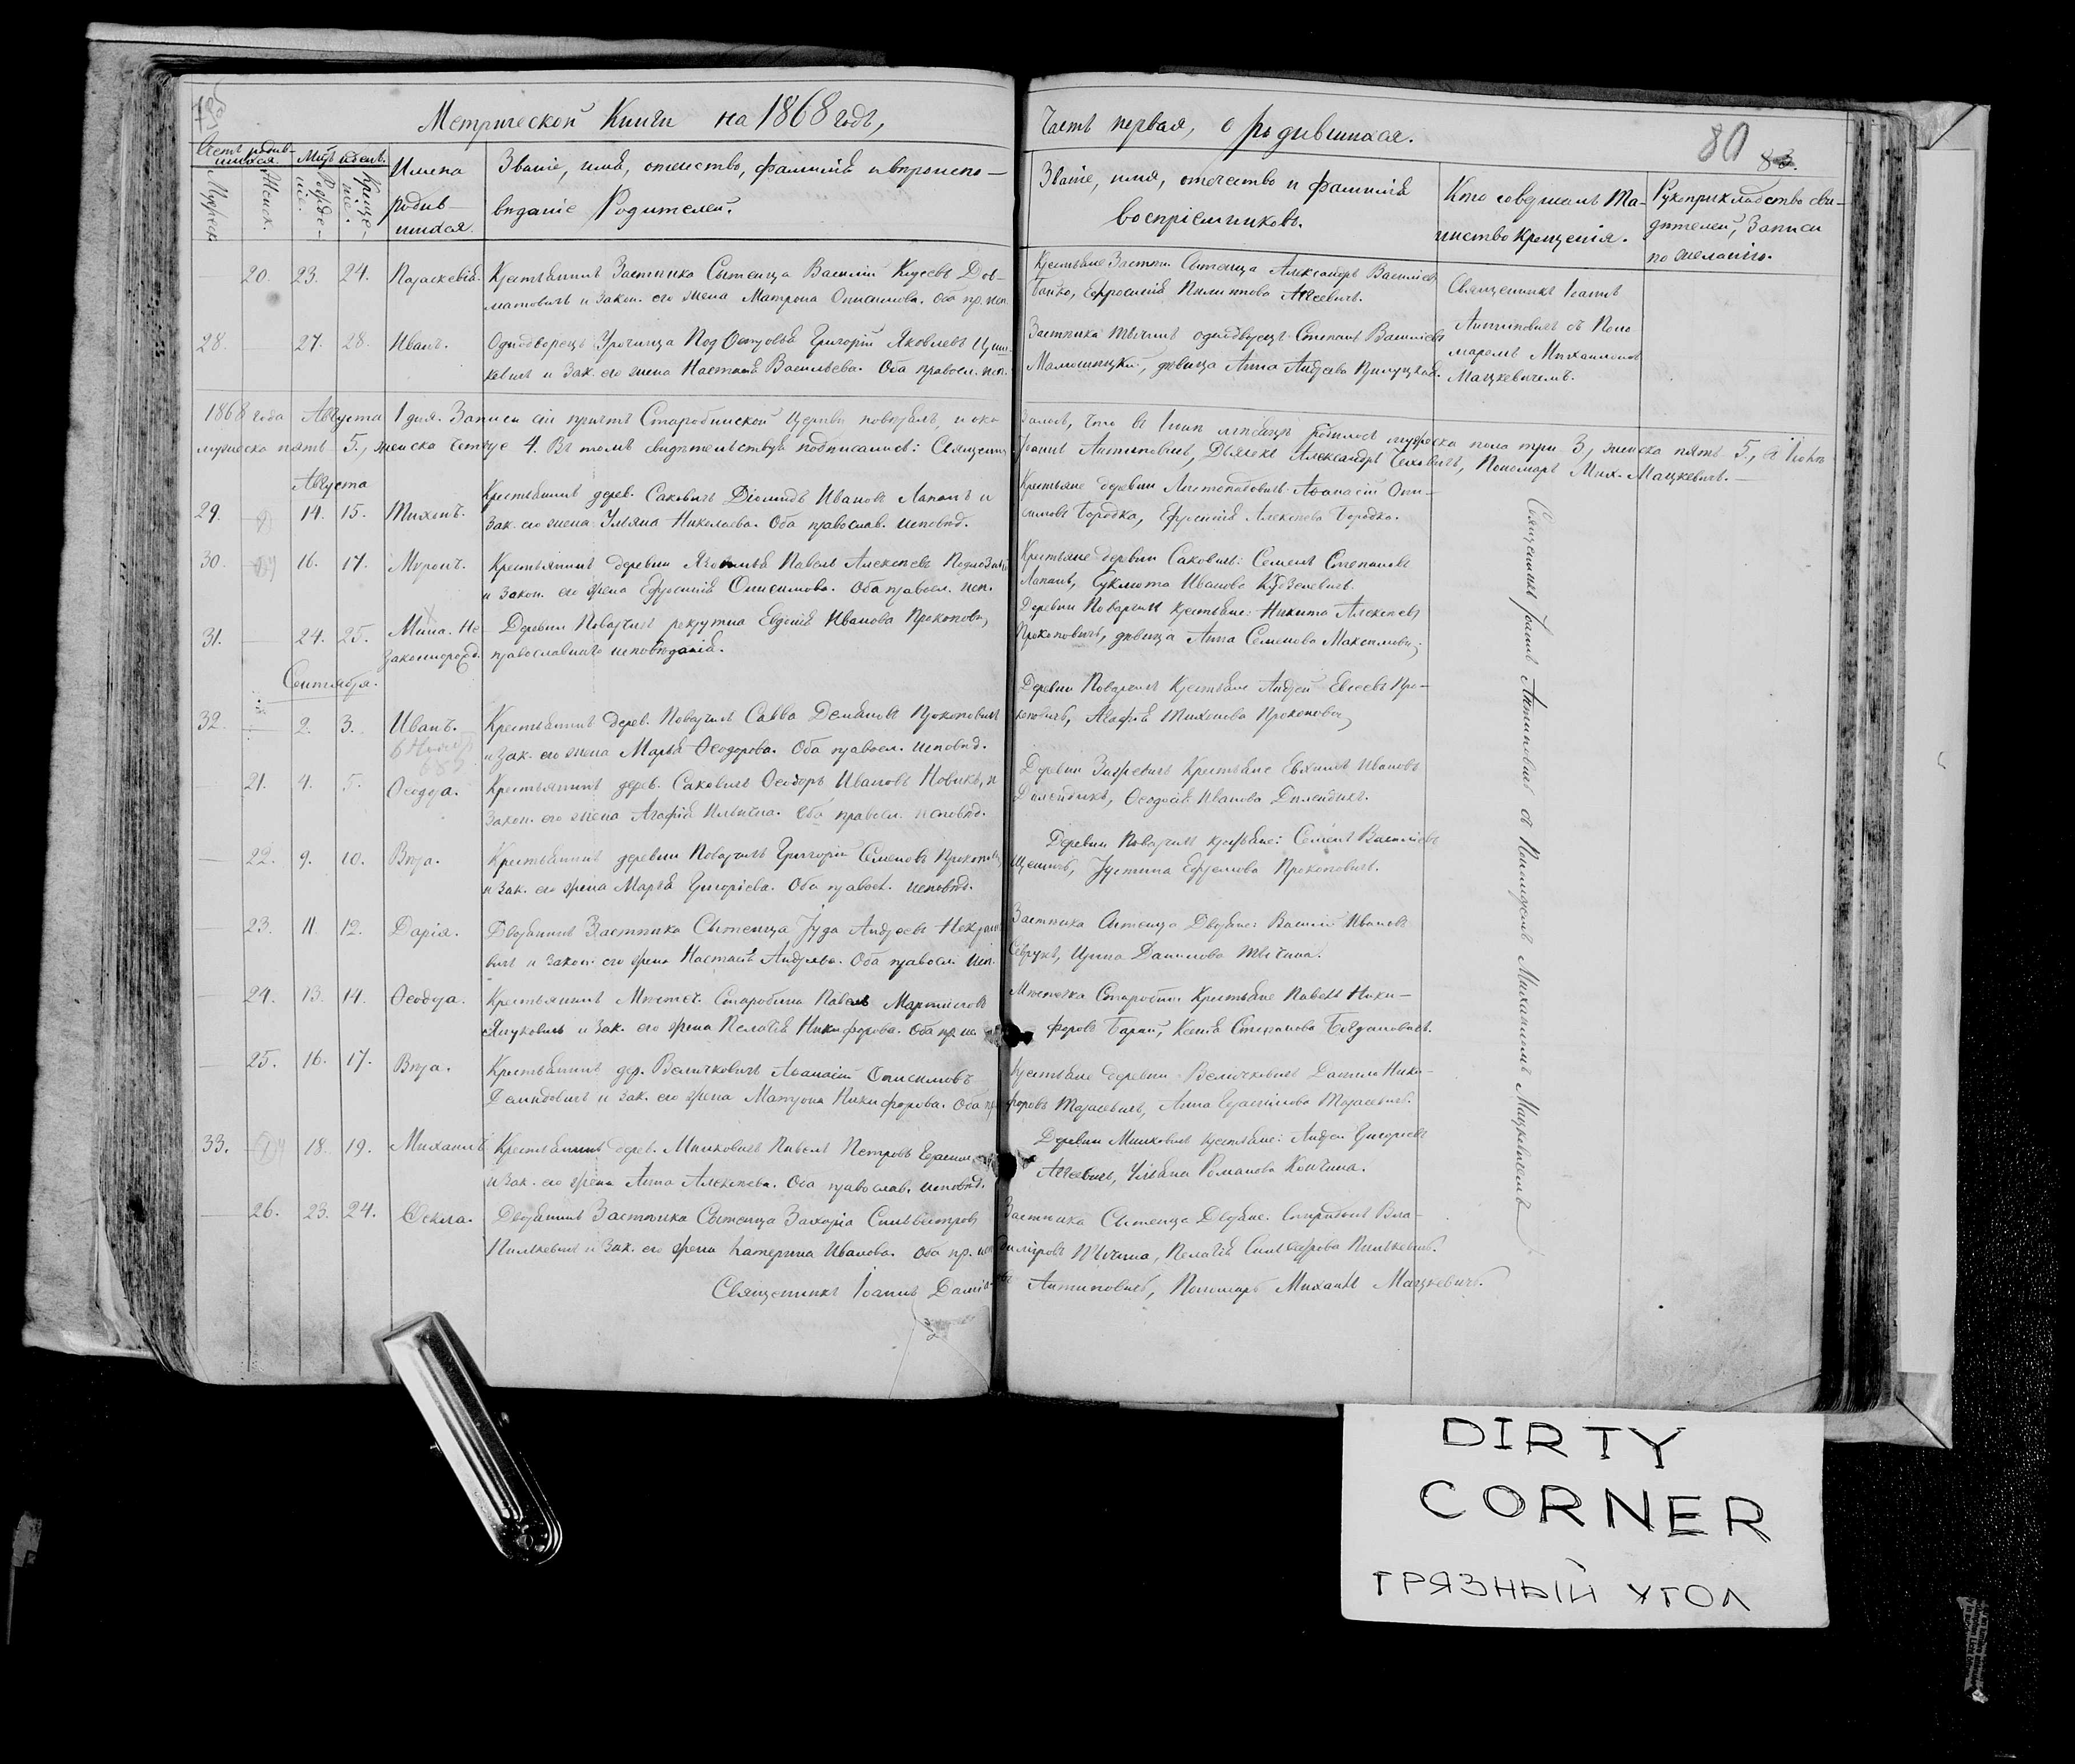 Метрической Книги на 1868 годъ,
Часть первая, о родившихся.
80
83.
Счетъ родив-
шихся.
Мужеск.
Женск.
Мѣс. и день.
Рожде-
нiе.
Креще-
нiе.
Имена
родив-
шихся.
Званiе, имя, отчество, фамилiя и вѣроиспо-
вѣданiе Родителей.
Званiе, имя, отчество и фамилiя
воспрiемниковъ.
Кто совершалъ Та-
инство Крещенiя.
Рукоприкладство сви-
дѣтелей, Записи
по желанiю.
20. 23. 24. Параскевiя. Крестьянинъ Застѣнка Сытенца Василiй Дов-
матовичъ и закон. его жена Матрона Онисимова. Оба пр. исп.
Крестьяне Застѣн. Сытенца Александръ Василiевъ
Бойко, Ефросинiя Филиппова
Священникъ Iоаннъ
Антиповичъ съ Поно
маремъ Михаиломъ
Мацкевичемъ.
28. 27. 28. Иванъ. Однодворецъ Урочища Григорiй Яковлевъ
и Зак. его жена Настасiя Васильева. Оба правосл. исп.
Застѣнка Тычинъ однодворецъ Степанъ Василiевъ
дѣвица Анна Андреева
1868 года Августа 1 дня. Записи сiи причтъ Старобинской Церкви повѣрялъ, и ока
залось, что въ Iюлѣ мѣсяцѣ родилось мужеска пола три 3, женска пять 5, а
мужеска пять 5, женска четыре 4. Въ томъ свидѣтельствуя подписались: Священникъ
Iоаннъ Антиповичъ, Дьячекъ Александръ Чеховичъ, Пономарь Мих. Мацкевичъ.
Августа
29. 14. 15. Тихонъ. Крестьянинъ дерев. Саковичъ Дiомидъ Ивановъ Лапанъ и
Зак. его жена Ульяна Николаева. Оба православ. исповѣд.
Крестьяне деревни Листопадовичъ Аѳанасiй Они-
симовъ Бородко, Ефросинiя Алексѣева Бородко.
30. 16. 17. Миронъ. Крестьянинъ деревни Павелъ Алексѣевъ
и Закон. его жена Ефросинiя Онисимова. Оба правосл. исп.
Крестьяне деревни Саковичъ: Семенъ Степановъ
Лапанъ, Иванова
31. 24. 25. Мина. Не
законнорожд. Деревни Поварчичъ рекрутка Евдокiя Иванова Прокопович,
православнаго исповѣданiя.
Деревни Поварчичъ крестьяне: Никита Алексѣевъ
Прокоповичъ, дѣвица Анна Семенова
Сентября.
32. 2. 3. Иванъ. Крестьянинъ дерев. Поварчичъ Савва Демьяновъ Прокоповичъ
и Зак. его жена Марья Ѳеодорова. Оба правосл. исповѣд.
Деревни Поварчичъ Крестьяне Андрей Евсеевъ Про-
коповичъ, Агафiя Тихонова Прокопович,
21. 4. 5. Ѳеодора. Крестьянинъ дерев. Саковичъ Ѳеодоръ Ивановъ Новикъ, и
Закон. его жена Агафiя Ильина. Оба правосл. исповѣд.
Деревни Крестьяне Евхимъ Ивановъ
Ѳеодосiя Иванова
22. 9. 10. Вѣра. Крестьянинъ деревни Поварчичъ Григорiй Семеновъ Прокопович
и Зак. его жена Марья Григорiева. Оба правосл. исповѣд.
Деревни Поварчичъ крестьяне: Семенъ Василiевъ
Iустина Ефремова Прокоповичъ.
23. 11. 12. Дарiя. Дворянинъ Застѣнка Сытенца Iуда Андреевъ Некраше
вичъ и Закон. его жена Настасiя Андреева. Оба правосл. исп.
Застѣнка Сытенца Дворяне: Василiй Ивановъ
Севрукъ, Ирина Данилова Тычина.
24. 13. 14. Ѳеодора. Крестьянинъ Мѣстеч. Старобина Павелъ Мартиновъ
Януковичъ и Зак. его жена Пелагiя Никифорова. Оба пр. ис.
Мѣстечка Старобина Крестьяне Павелъ Ники-
форовъ Баран, Ксенiя Степанова Богдановичъ.
25. 16. 17. Вѣра. Крестьянинъ дер. Величковичъ Аѳанасiй Онисимовъ
Демидовичъ и зак. его жена Матрона Никифорова. Оба пр.
Крестьяне деревни Величковичъ Данило Ники-
форовъ Тарасевичъ, Анна Герасимова Тарасевичъ.
33. 18. 19. Михаилъ. Крестьянинъ дерев. Милковичъ Павелъ Петровъ
и Зак. его жена Анна Алексѣева. Оба православ. исповѣд.
Деревни Милковичъ крестьяне: Андрей Григорiевъ
Ульяна Романова
26. 23. 24. Ѳекла. Дворянинъ Застѣнка Сытенца Захарiа Сильвестровъ
Пилькевичъ и Зак. его жена Катерина Иванова. Оба пр. исп.
Застѣнка Сытенца Дворяне: Спиридонъ Вла-
димiровъ Тычина, Пелагiя Сильвестрова Пилькевичъ.
Священникъ Iоаннъ Антиповичъ съ Пономаремъ Михаиломъ Мацкевичемъ
Священникъ Iоаннъ Антиповичъ, Пономарь Михаилъ Мацкевичъ.
DIRTY
CORNER
ГРЯЗНЫЙ УГОЛ